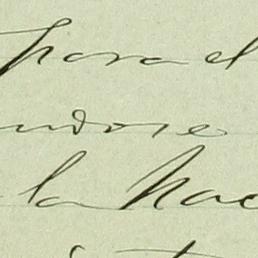 para el
ndose
la Hac